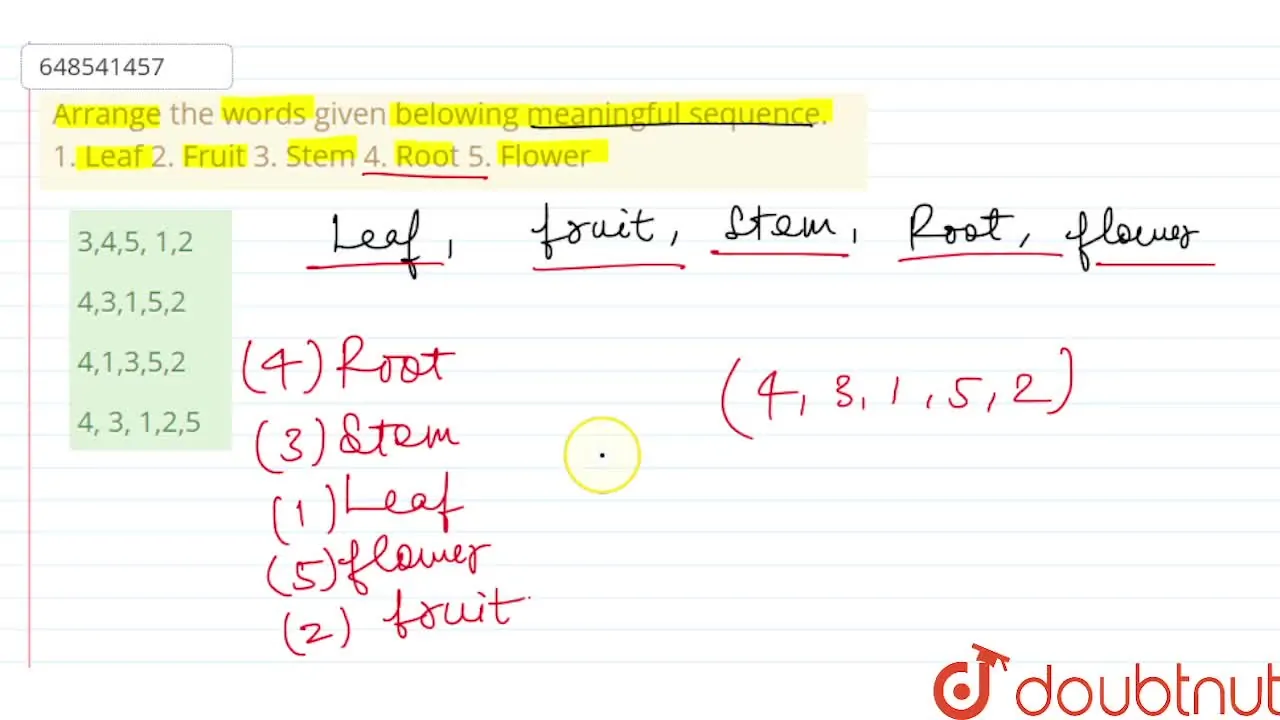 648541457
Arrange the words given belowing meaningful sequence.
1. Leaf 2. Fruit 3. Stem 4. Root 5. Flower
3,4,5, 1,2
4,3,1,5,2
4,1,3,5,2
4, 3, 1,2,5
Leaf, fruit, Stem, Root, flower
(4) Root
(3) Stem
(1) Leaf
(5) flower
(2) fruit
(4, 3, 1, 5, 2)
doubtnut